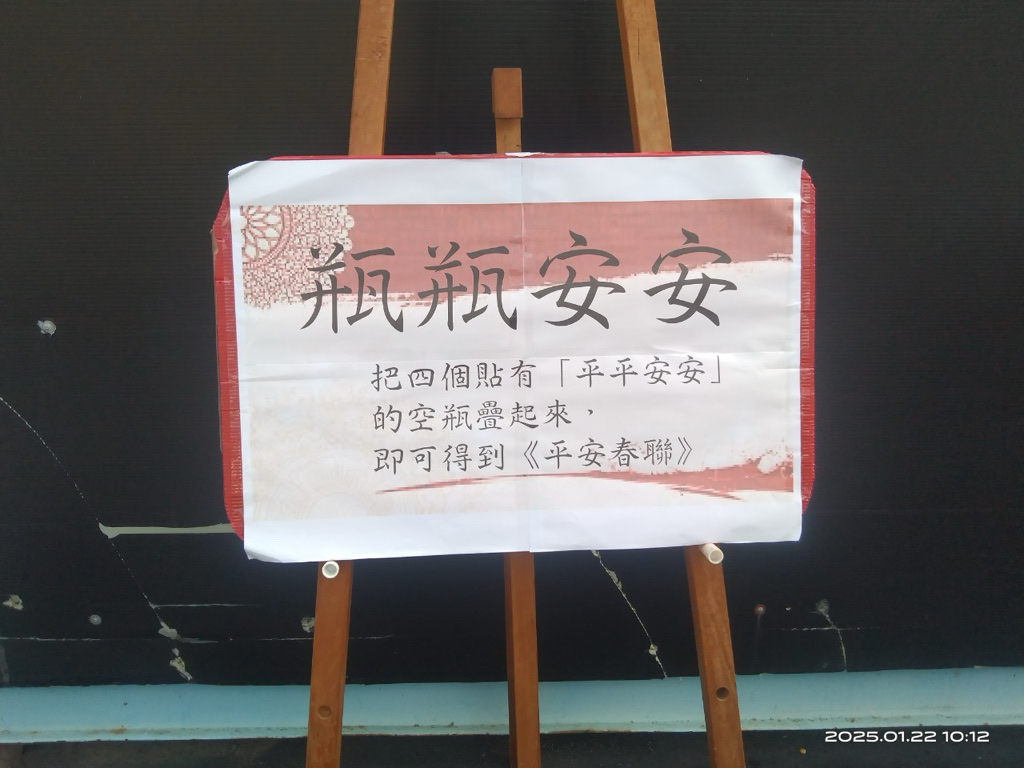 瓶瓶安安
把四個貼有「平平安安」
的空瓶疊起來，
即可得到《平安春聯》
2025.01.22 10:12